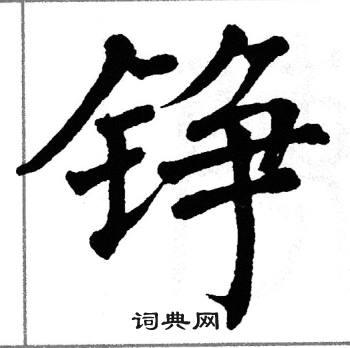 铮
词典网